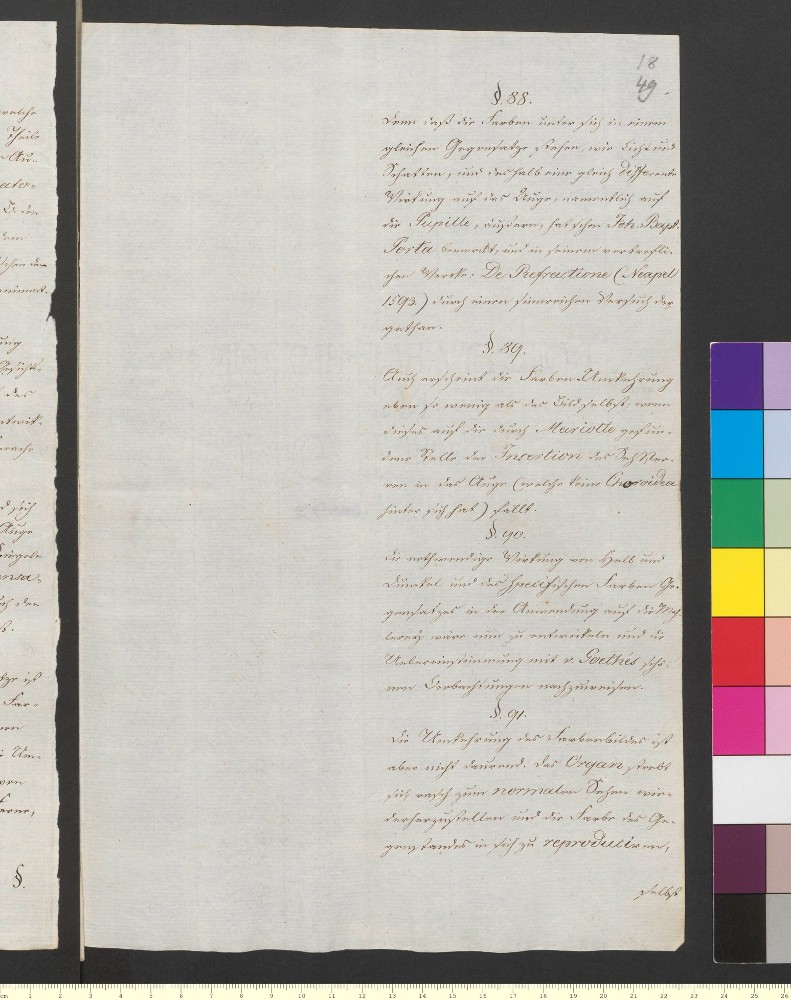 welche
Theile
18
49
§. 88.
Denn daß die Farben unter sich in einem
gleichen Gegensatze stehen, wie Licht und
Schatten, und deshalb eine gleich differente
Wirkung auf das Auge, namentlich auf
die Pupille, äußern, hat schon Joh. Bapt.
Porta bemerkt, und in seinem vortrefli-
chen Werke: De Refractione (Neapel
1593.) durch einen sinnreichen Versuch dar-
gethan.
§. 89.
Auch erscheint die Farben-Umkehrung
eben so wenig als das Bild selbst, wenn
dieses auf die durch Mariotte gefun-
dene Stelle der Insertion des Sehner-
ven in das Auge (welche keine Choroidea
hinter sich hat) fällt.
§. 90.
Die nothwendige Wirkung von Hell und
Dunkel und des specifischen Farben Ge-
gensatzes in der Anwendung auf die Mah-
lerey wäre nun zu entwickeln und die
Uebereinstimmung mit v. Goethes schö-
nen Beobachtungen nachzuweisen.
§. 91.
Die Umkehrung des Farbenbildes ist
aber nicht daurend. Das Organ strebt
sich rasch zum normalen Sehen wie-
derherzustellen und die Farbe des Ge-
genstandes in sich zu reproduciren,
selbst
des
Auge
§.